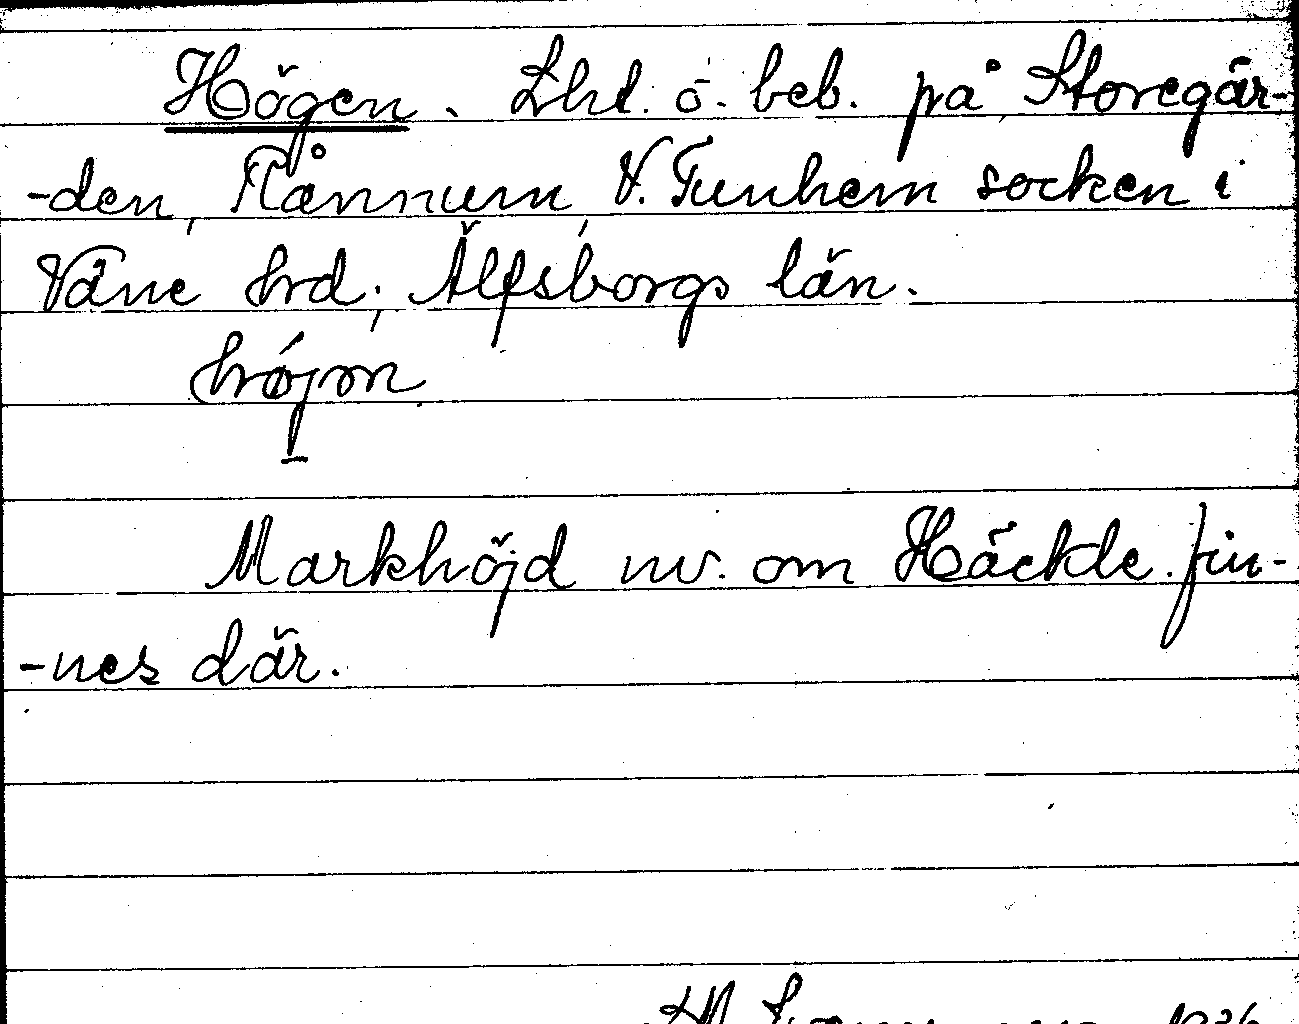 Högen. Lht. o. beb. på Storegär-
-den, Flånnum, V. Tunhem socken i
Väne hrd; Älfsborgs län.
Markhöjd nv. om Häckle. fin-
-nes där.
1936